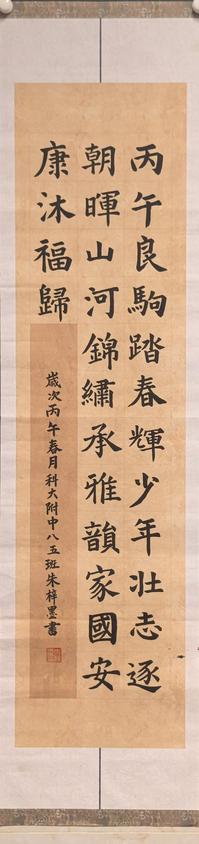 丙午良駒踏春輝少年壯志逐
朝暉山河錦繡承雅韻家國安
康沐福歸
歲次丙午春月科大附中八五班朱梓墨書